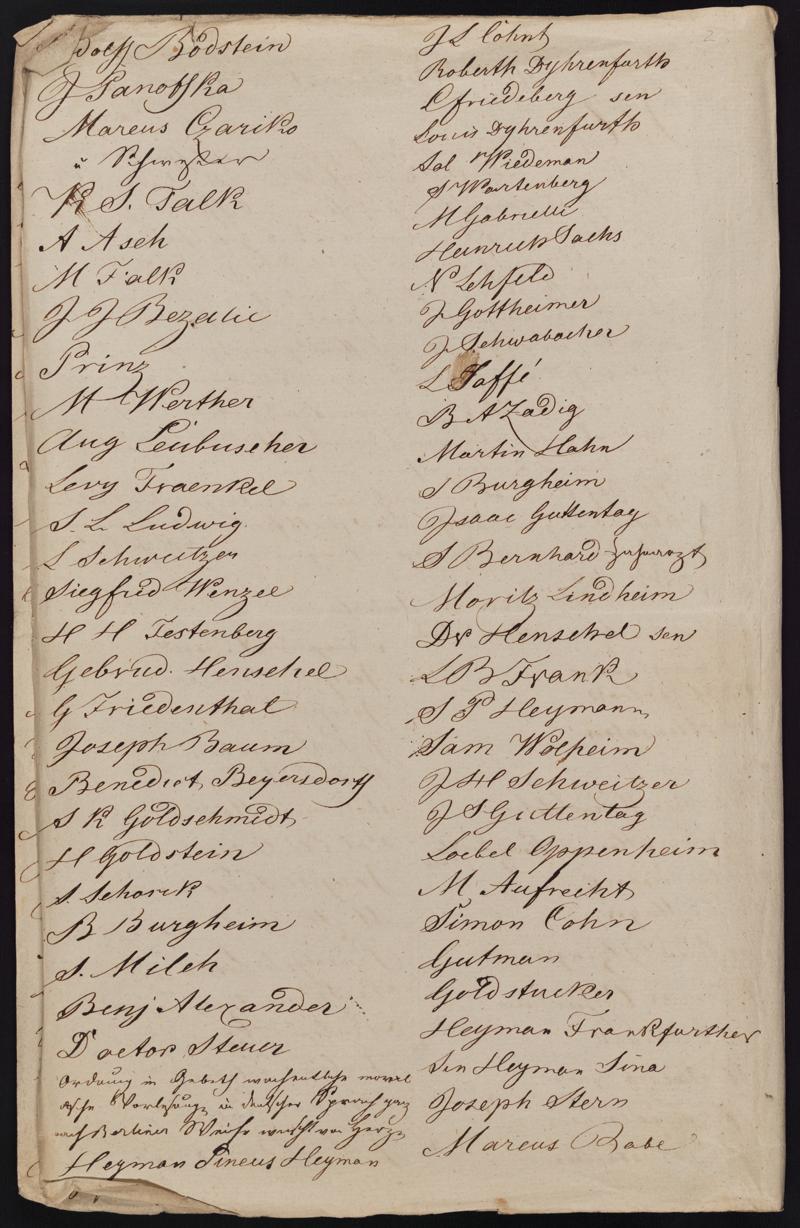 Rödstein
J Sanofska
Marcus Czariko
u Schwester
K S. Falk
A Asch
M Falk
J J Bezalie
Prinz
M Werther
Aug Leubuscher
Levy Fraenkel
S. L. Ludwig
L Schweitzer
Siegfried Wenzel
H H Festenberg
Gebrüd. Henschel
G Friedenthal
Joseph Baum
Benedict Beyersdorff
S K Goldschmidt
H Goldstein
S. Schorck
B Burgheim
S. Milch
Benj Alexander
Doctor Steuer
Ordnung in Gebeth wochentliche moral
ische Vorlesung in deutscher Sprach ganz
nach Berliner Weise wünscht von Herzen
Heyman Pincus Heyman
J L Cohnt
Roberth Dyhrenfurth
L friedeberg sen
Louis Dyhrenfurth
Sal Wiedeman
S Wartenberg
M Gabrielli
Heinrich Sachs
N Lehfeld
J Gottheimer
J Schwabacher
L Jaffé
B A Zadig
Martin Hahn
S Burgheim
Isaac Guttentag
S Bernhard
Moritz Lindheim
Dr Henschel sen
L B Frank
S P Heymann
Sam Wolheim
J H Schweitzer
J S Guttentag
Loebel Oppenheim
M Aufrecht
Simon Cohn
Gutman
Goldstucker
Heyman Frankfurther
Sen Heyman Sina
Joseph Stern
Marcus Babe
2